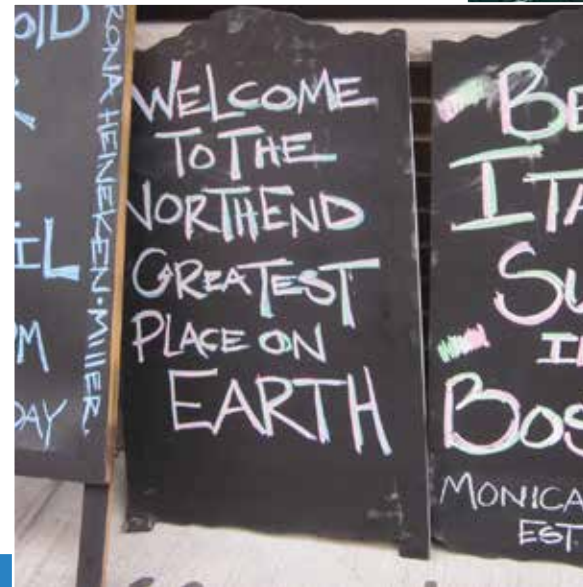 RONA HEINEKEN·MILLER.
PM
DAY
WELCOME
TO THE
NORTHEND
GREATEST
PLACE ON
EARTH
BE
ITA
SU
BOS
MONICA
EST.